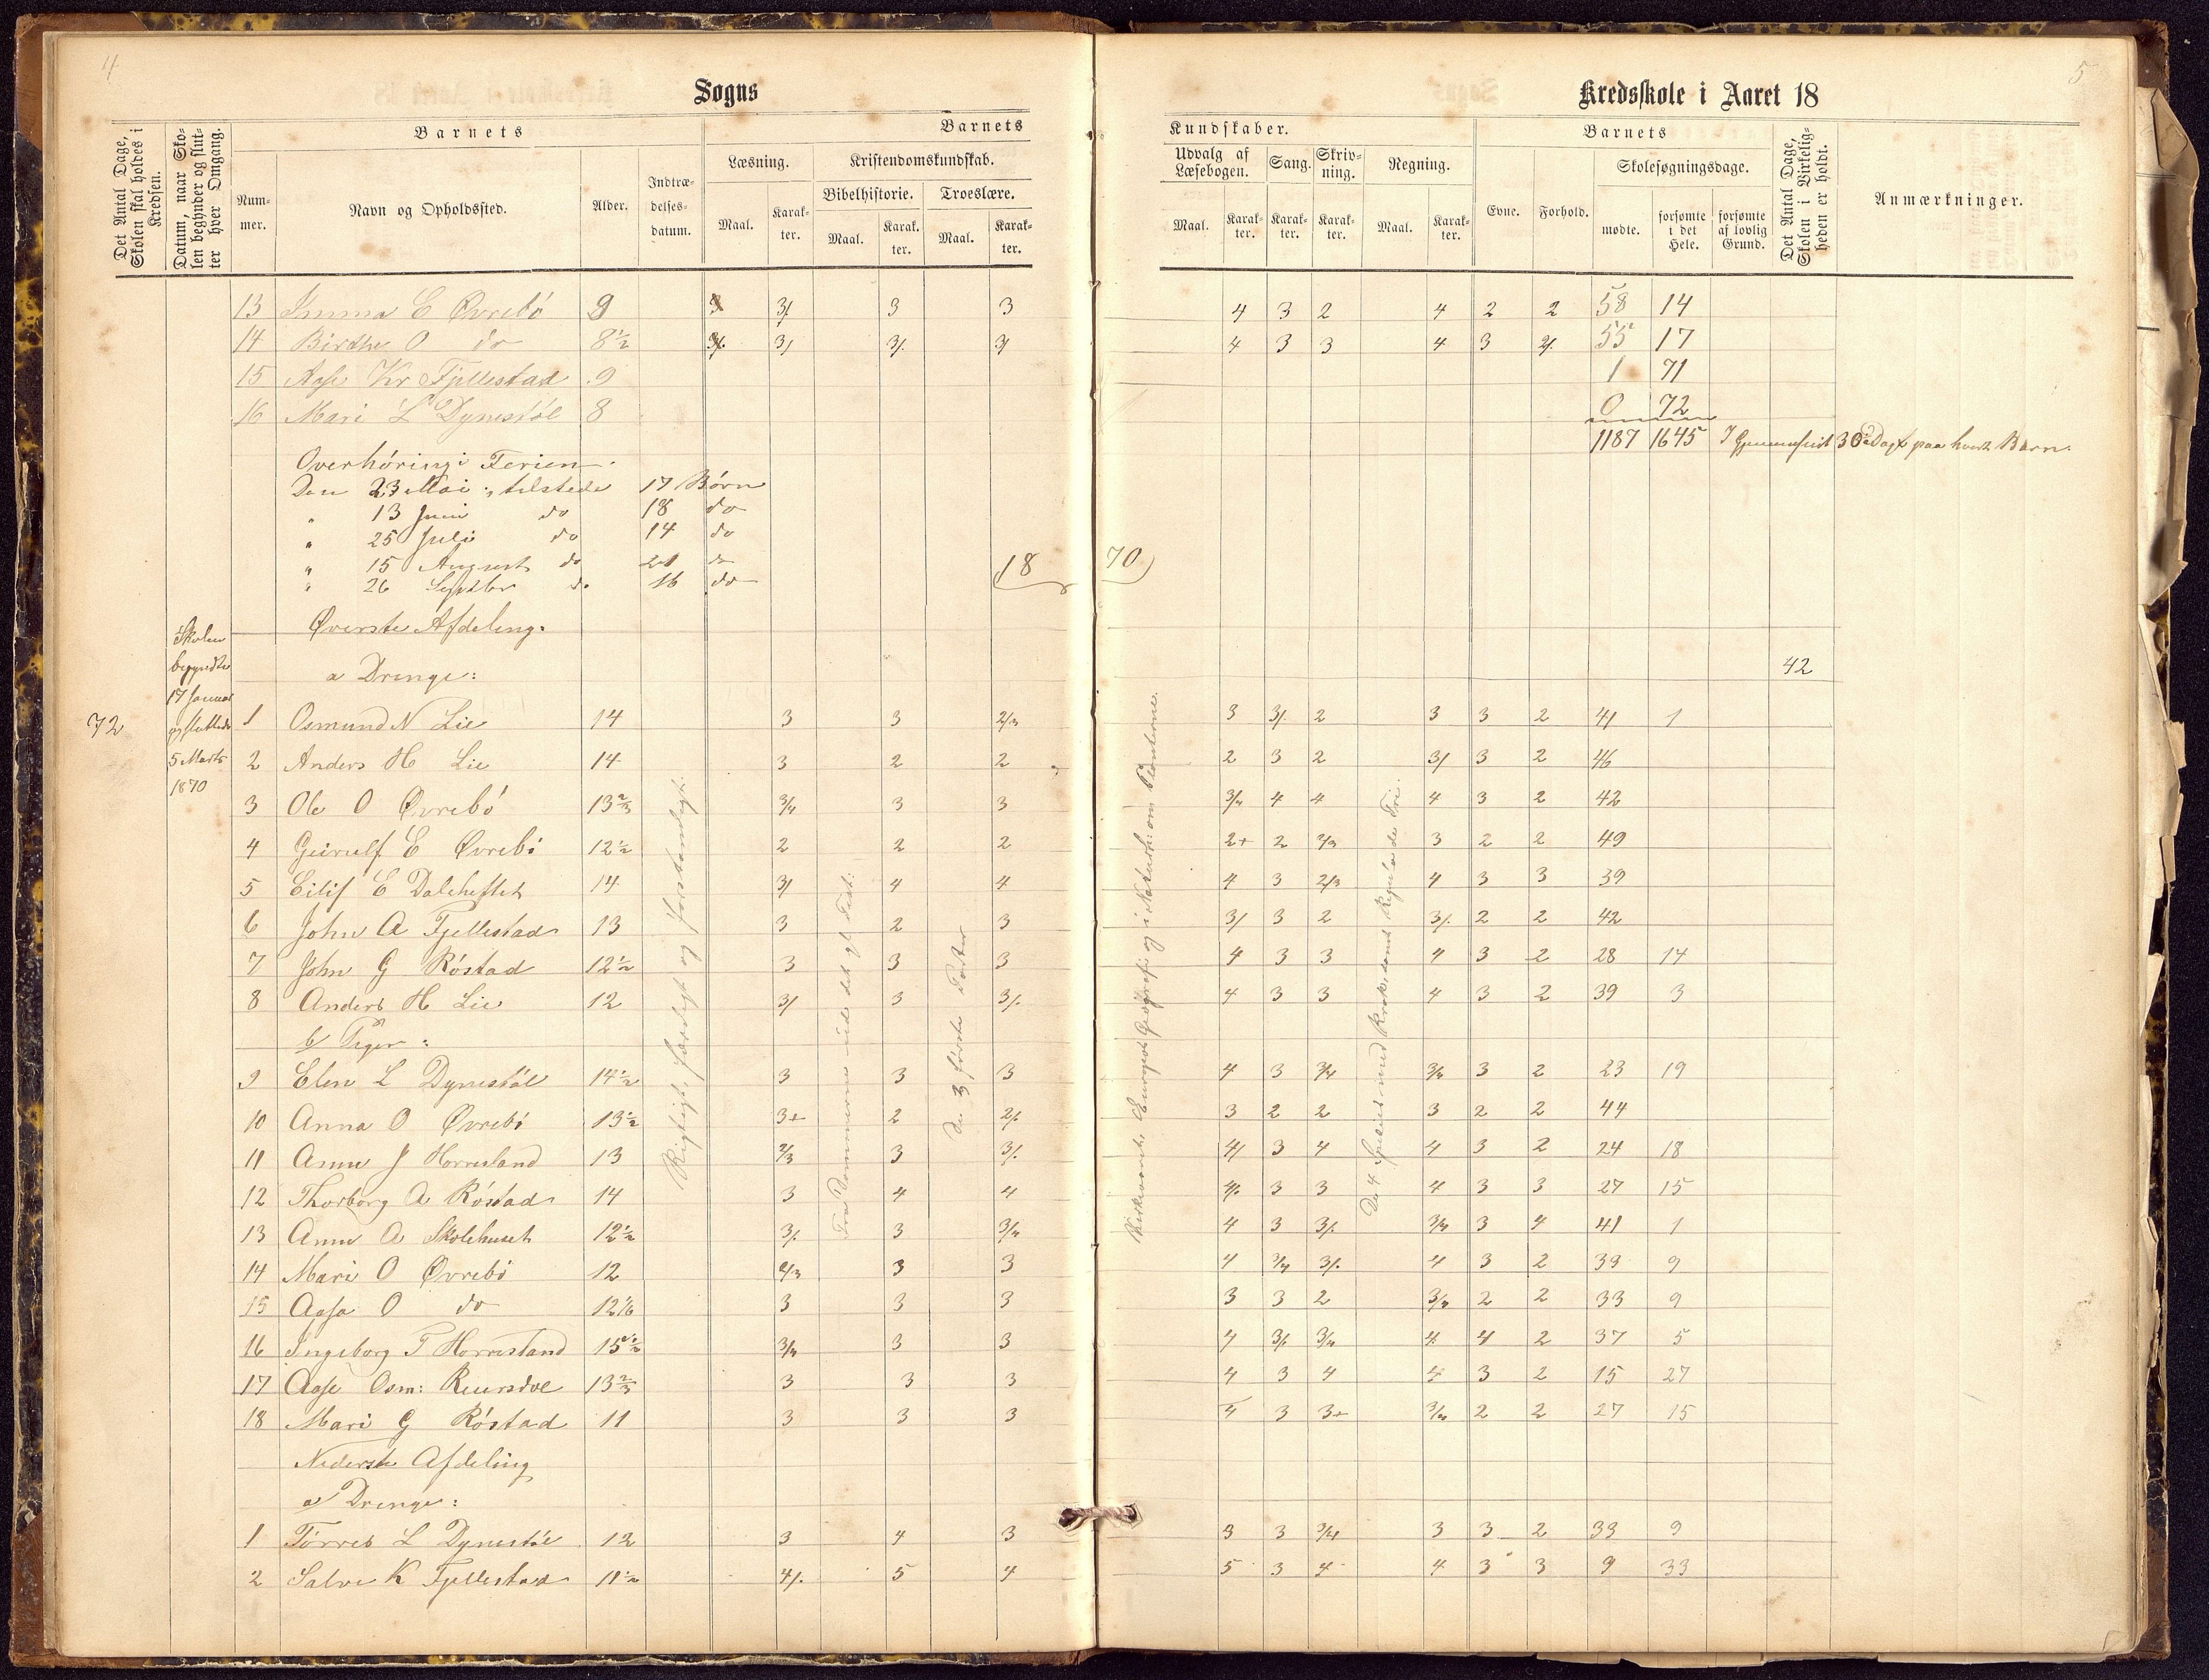 4
Sogns
Det Antal Dage, Skolen skal holdes i Kredsen.
Datum, naar Skolen begynder og slutter hver Omgang.
Barnets
Nummer.
Navn og Opholdssted.
Alder.
Indtrædelsesdatum.
Barnets
Læsning.
Kristendomskundskab.
Bibelhistorie.
Troeslære.
Maal.
Karakter.
Maal.
Karakter.
Maal.
Karakter.
5
Kredsskole i Aaret 18
Kundskaber.
Udvalg af Læsebogen.
Sang.
Skrivning.
Regning.
Maal.
Karakter.
Karakter.
Karakter.
Maal.
Karakter.
Barnets
Evne.
Forhold.
Skolesøgningsdage.
mødte.
forsømte i det Hele.
forsømte af lovlig Grund.
Det Antal Dage, Skolen i Virkeligheden er holdt.
Anmærkninger.
13 E Øvrebö 9 3/ 3 3 4 3 2 4 2 2 58 14
14 Birthe O do 8½ 3/. 3/ 3/. 3/ 4 3 3 4 3 2/. 55 17
15 Aase Kr Fjellestad 9 1 71
16 Mari L Dynestöl 8 0 72
1187 1645 I Gjennemsnit 30 Dage paa hvert Barn.
Overhöring i Ferien.
Den 23 Mai tilstede 17 Børn
" 13 Juni do 18 do
" 25 Juli do 14 do
" 15 August do 21 do
" 26 Septbr do 16 do
18 70
Øverste Afdeling.
Skolen begyndte 17 Januar og sluttede 5 Marts 1870
a Drenge:
42
72
1 Osmund N Lie 14 3 3 2/3 3 3/. 2 3 3 2 41 1
2 Anders H Lie 14 3 2 2 2 3 2 3/ 3 2 46
3 Ole O Øvrebö 13⅔ 3/4 3 3 3/4 4 4 4 3 2 42
4 Geirulf E Øvrebö 12½ 2 2 2 2+ 2 2/3 3 2 2 49
5 Eilif E Daleheftet 14 3/ 4 4 4 3 2/3 4 3 3 39
6 John A Fjellestad 13 3 2 3 3/ 3 2 3/. 2 2 42
7 John G Röstad 12½ 3 3 3 4 3 3 4 3 2 28 14
8 Anders H Lie 12 3/ 3 3/. 4 3 3 4 3 2 39 3
b/ Piger:
9 Elen L Dynestöl 14½ 3 3 3 4 3 3/4 3/4 3 2 23 19
10 Anna O Øvrebö 13½ 3+ 2 2/. 3 2 2 3 2 2 44
11 Anne J Horrisland 13 2/3 3 3/. 4/ 3 4 4 3 2 24 18
12 Thorborg A Röstad 14 3 4 4 4/. 3 3 4 3 3 27 15
13 Anne A Skolehuset 12½ 3/. 3 3/4 4 3 3/. 3/4 3 4 41 1
14 Mari O Øvrebö 12 2/3 3 3 4 3/4 3/. 4 3 2 33 9
15 Aase O do 12⅙ 3 3 3 3 3 2 3/4 2 2 33 9
16 Ingeborg T Horrisland 15½ 3/4 3 3 4 3/. 3/4 4 4 2 37 5
17 Aase Osm: Reiersdöl 13⅔ 3 3 3 4 3 4 4 3 2 15 27
18 Mari G Röstad 11 3 3 3 4 3 3+ 3/4 2 2 27 15
Rigtigt, færdigt og forstandigt.
Fra Dommerne ud det gl. Test:
De 3 første Parter
Europas Geografi og i Naturh: om Planterne.
De 4 Species med Brøk, samt Regula de Tri.
Nederste Afdeling
a/ Drenge:
1 Torres L Dynestöl 12 3 4 3 3 3 3/4 3 3 2 33 9
2 Salve K Fjellestad 11½ 4/. 5 4 5 3 4 4 3 3 9 33